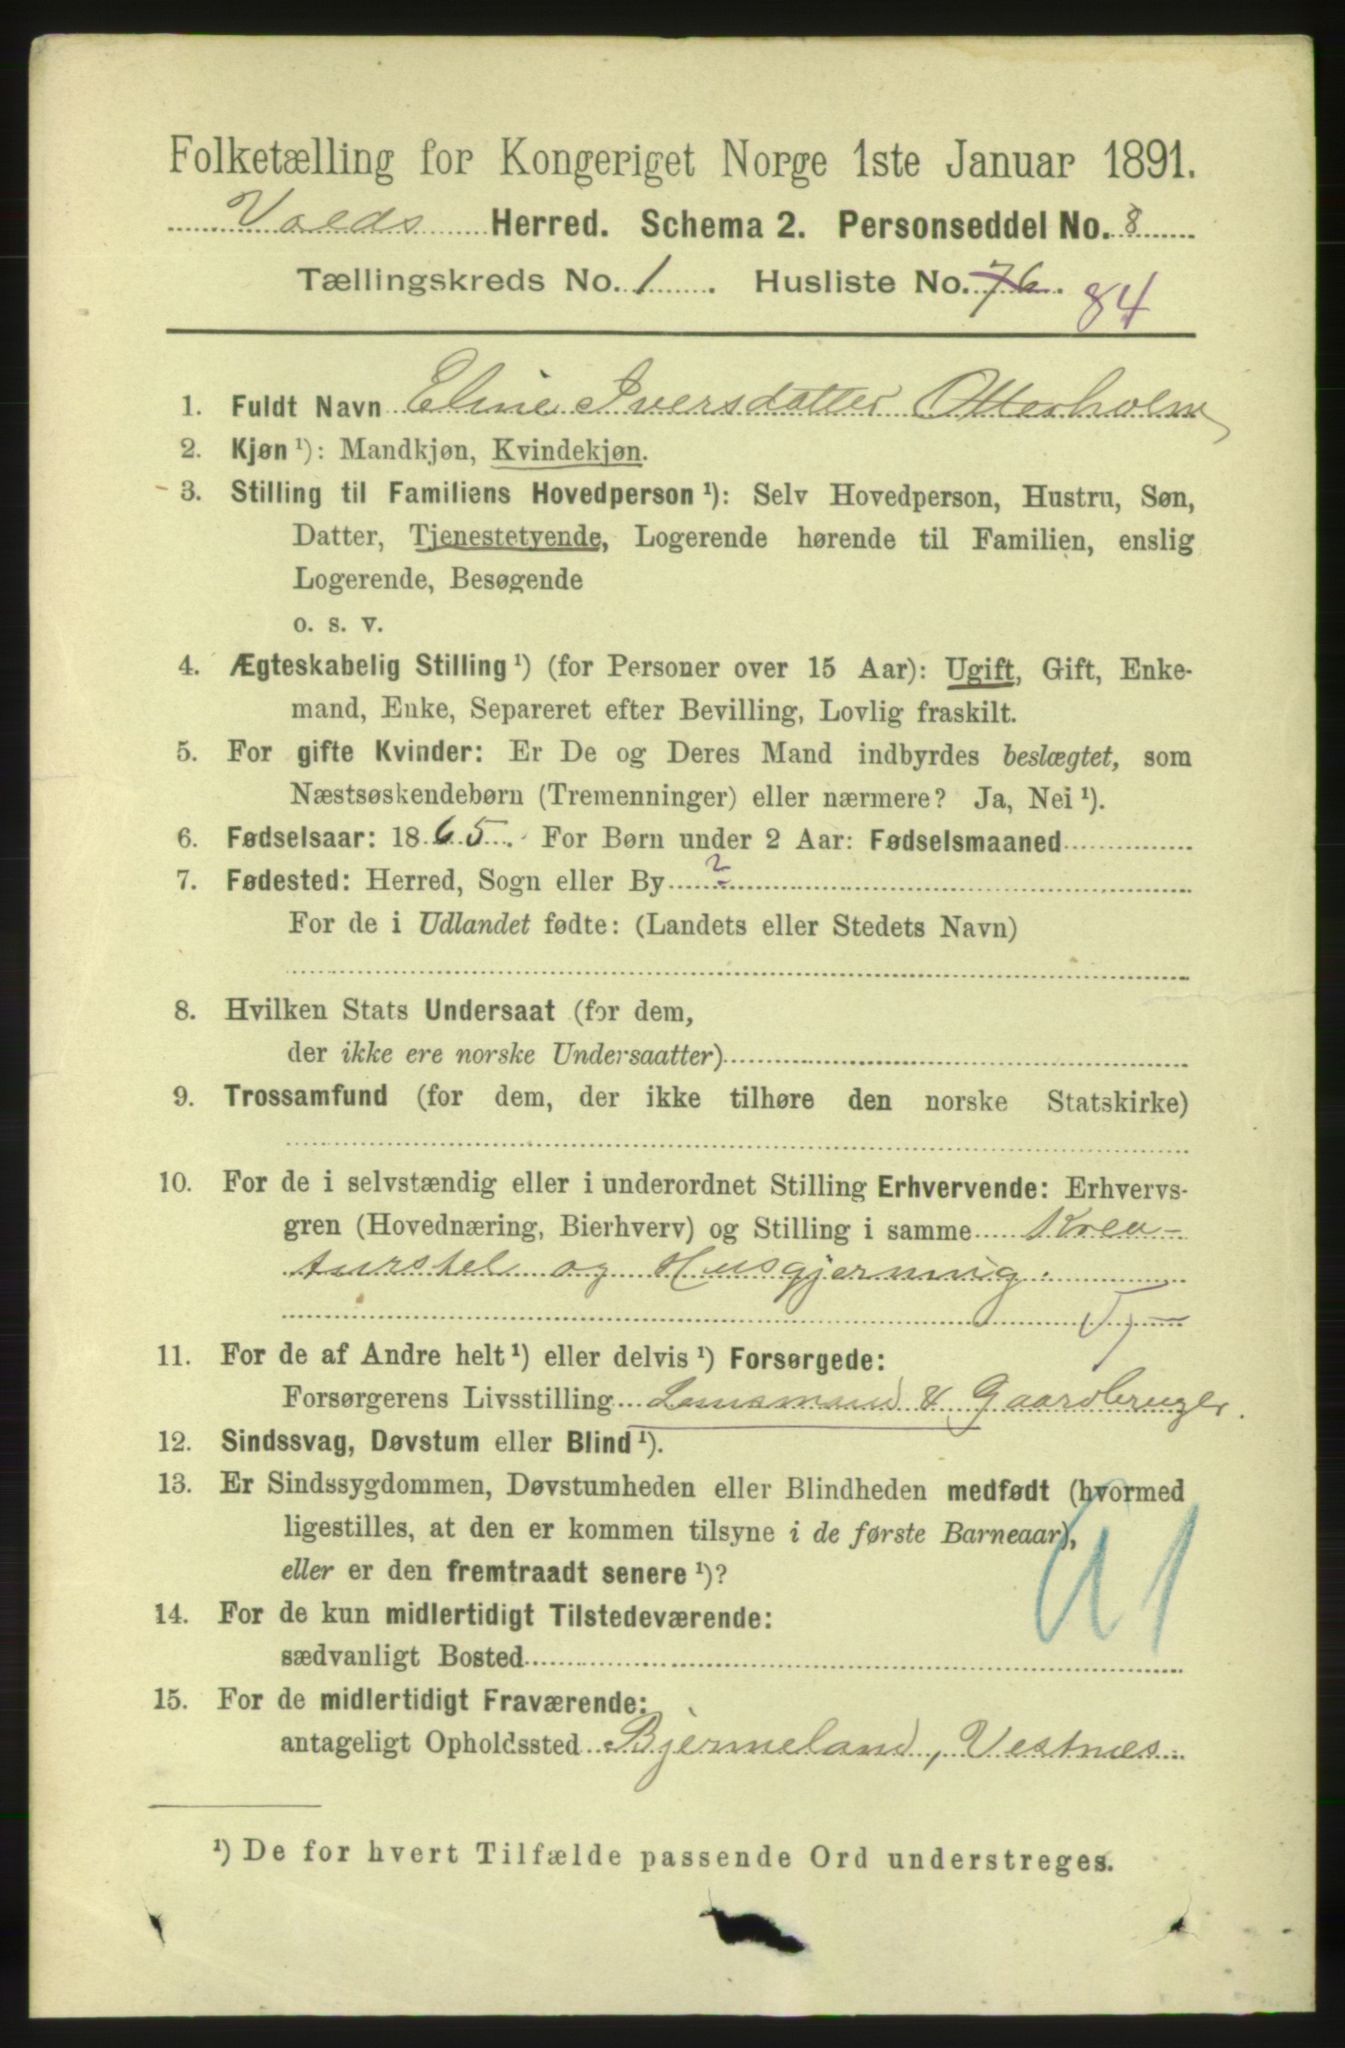 Folketælling for Kongeriget Norge 1ste Januar 1891.
Volds Herred. Schema 2. Personseddel No. 8
Tællingskreds No. 1. Husliste No. 76. 84
1. Fuldt Navn Eline Iversdatter Otterholm
2. Kjøn ¹): Mandkjøn, Kvindekjøn.
3. Stilling til Familiens Hovedperson ¹): Selv Hovedperson, Hustru, Søn,
Datter, Tjenestetyende, Logerende hørende til Familien, enslig
Logerende, Besøgende
o. s. v.
4. Ægteskabelig Stilling ¹) (for Personer over 15 Aar): Ugift, Gift, Enke-
mand, Enke, Separeret efter Bevilling, Lovlig fraskilt.
5. For gifte Kvinder: Er De og Deres Mand indbyrdes beslægtet, som
Næstsøskendebørn (Tremenninger) eller nærmere? Ja, Nei ¹).
6. Fødselsaar: 1865. For Børn under 2 Aar: Fødselsmaaned
7. Fødested: Herred, Sogn eller By ?
For de i Udlandet fødte: (Landets eller Stedets Navn)
8. Hvilken Stats Undersaat (for dem,
der ikke ere norske Undersaatter)
9. Trossamfund (for dem, der ikke tilhøre den norske Statskirke)
10. For de i selvstændig eller i underordnet Stilling Erhvervende: Erhvervs-
gren (Hovednæring, Bierhverv) og Stilling i samme Krea-
turstel og Husgjerning.
Tj
11. For de af Andre helt ¹) eller delvis ¹) Forsørgede:
Forsørgerens Livsstilling Lensmand & Gaardbruger.
12. Sindssvag, Døvstum eller Blind ¹).
13. Er Sindssygdommen, Døvstumheden eller Blindheden medfødt (hvormed
ligestilles, at den er kommen tilsyne i de første Barneaar),
eller er den fremtraadt senere ¹)?
14. For de kun midlertidigt Tilstedeværende:
sædvanligt Bosted
15. For de midlertidigt Fraværende:
antageligt Opholdssted Bjermeland, Vestnæs.
¹) De for hvert Tilfælde passende Ord understreges.